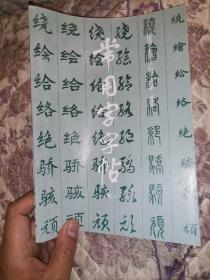 常用字字帖
绕绘给络绝骄骇顽
绕绘给络绝骄骇顽
绕绘给络绝骄骇顽
绕绘给络绝骄骇顽
繞繪給絡絕驕駭頑
繞繪給絡絕驕駭頑